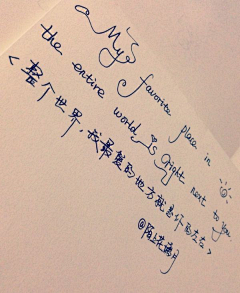 My favorite place in
the entire world is right next to you
<整个世界,我最爱的地方就是你的左右>